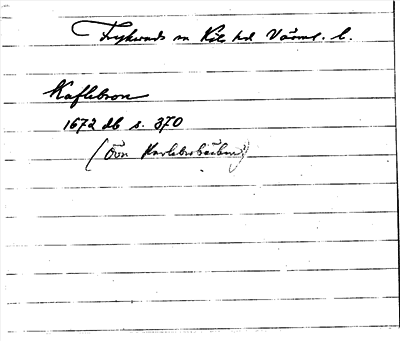 Frykeruds sn Kils hd Värml. l.
Kaflebron
1672 db s. 370
(över Kavlebrobäcken)